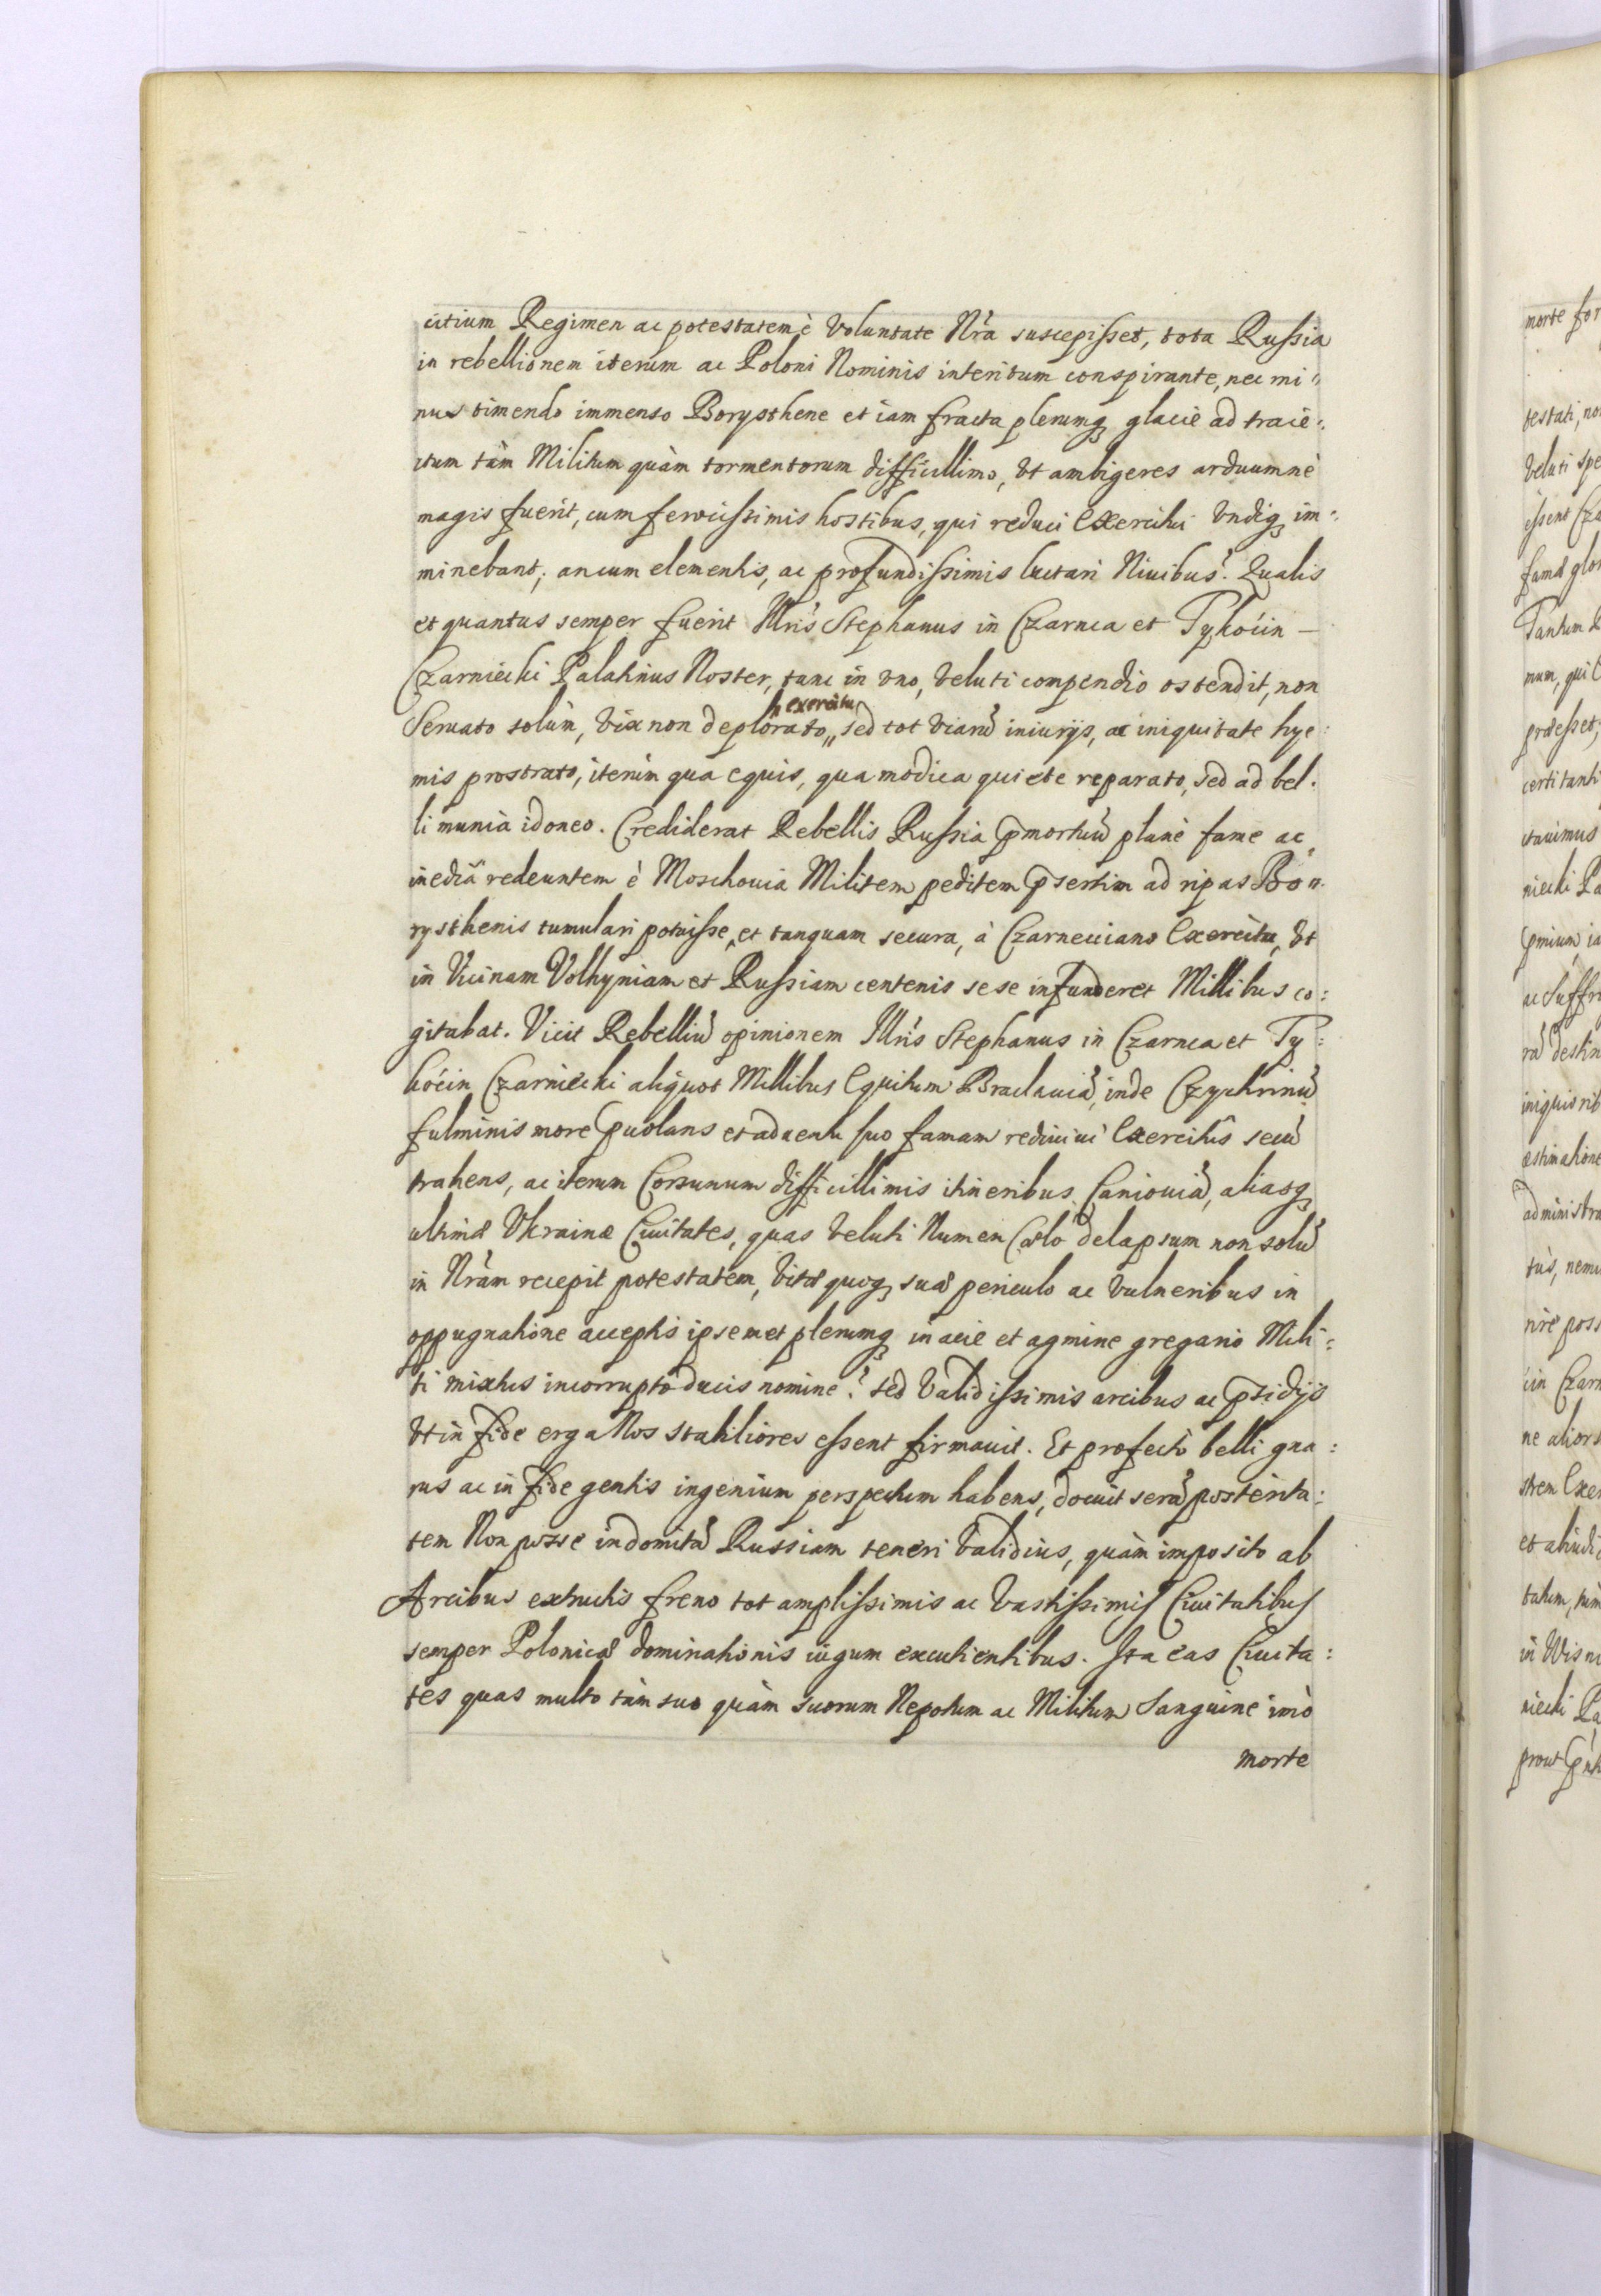 citium Regimen ac potestatem è voluntate Nr̃a suscepisset, tota Russia
in rebellionem iterum ac Poloni Nominis interitum conspirante, nec mi=
nus timendo immenso Borysthene et iam fracta plerumq; glacie ad traie=
ctum tàm Militum quàm tormentorum difficillimo, vt ambigeres arduumnè
magis fuerit, cum ferocissimis hostibus, qui reduci Exercitui vndiq; im=
minebant; an cum elementis, ac profundissimis luctari Niuibus? Qualis
et quantus semper fuerit Illr̃is Stephanus in Czarnca et Tykocin –
Czarniecki Palatinus Noster, tunc in vno, veluti compendio ostendit, non
exercitu
Seruato solùm, vix non deplorato,, sed tot viarũ iniurijs, ac iniquitate hye:
mis prostrato, iterùm qua equis, qua modica quiete reparato, sed ad bel:
li munia idoneo. Crediderat Rebellis Russia p̃mortuũ planè fame ac
inediã redeuntem è Moschouia Militem peditem p̃sertim ad ripas Bo=
rysthenis tumulari potuisse, et tanquam secura, à Czarneciano Exercitu, vt
in Vicinam Volhyniam et Russiam centenis sese infunderet Millibus co:
gitabat. Vicit Rebelliũ opinionem Illr̃is Stephanus in Czarnca et Ty:
kocin Czarniecki aliquot Millibus Equitum Braclauiã, inde Czychrinũ
fulminis more p̃uolans et aduentu suo famam rediuiui Exercitûs secũ
trahens, ac iterum Corsunum difficillimis itineribus Caniouiã, aliasq;
ultimæ Vkrainæ Ciuitates, quas veluti Numen Cœlo delapsum non solũ
in Nr̃am recepit potestatem, vitæ quoq; suæ periculo ac vulneribus in
oppugnatione acceptis ipsemet plerumq; in acie et agmine gregario Mili:
ti mixtus incorrupto ducis nomine? sed validissimis arcibus ac p̃sidijs
vt in fide erga Nos stabiliores essent firmauit. Et profectò belli gna:
rus ac in fide gentis ingenium perspectum habens, docuit serã posterita:
tem Non posse indomitã Russiam teneri validius, quàm imposito ab
Arcibus extructis freno tot amplissimis ac vastissimis Ciuitatibus
semper Polonicæ dominationis iùgum excutientibus. Ita eas Ciuita:
tes quas multo tàm suo quàm suorum Nepotum ac Militum Sanguine imò
morte